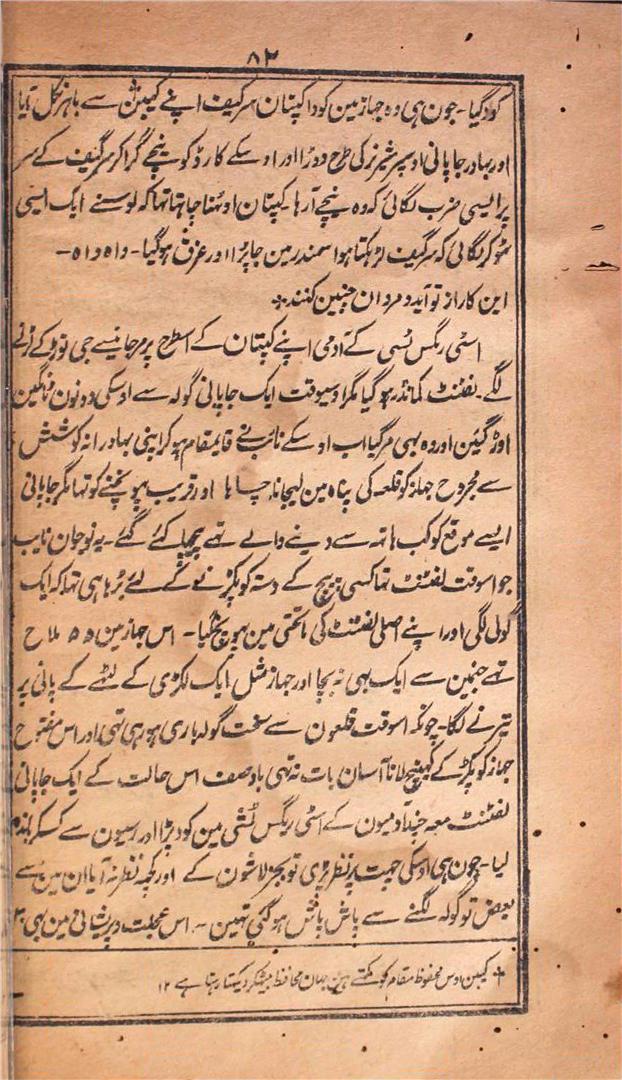 ۸۳
کودگیا۔ جون ہی وہ جہاز مین کودا کپتان سرگیف اپنے کیبن † سے باہر نکل آیا
اور بہادر جاپانی اوسپر شیر نر کی طرح دوڑا اور اوسکے کارڈ کو نیچے گرا کر سرگیف کے سر
پر ایسی ضرب لگائی کہ وہ نیچے آ رہا۔ کپتان اوٹھنا چاہتا تہا کہ اوسنے ایک ایسی
ٹھوکر لگائی کہ سرگیف لڑھکتا ہوا سمندر مین جا پڑا اور غرق ہوگیا۔ واہ واہ۔
این کار از تو آید و مردان چنین کنند
اسٹی ریگس ٹسی کے آدمی اپنے کپتان کے اسطرح پر مرجانیسے جی توڑ کے لڑنے
لگے۔ لفٹنٹ کمانڈر ہو گیا مگر اوسیوقت ایک جاپانی گولہ سے اوسکی دونون ٹانگین
اوڑ گئین اور وہ بہی مر گیا اب اوسکے نائب نے قایمقام ہو کر اپنی بہادرانہ کوشش
سے مجروح جہاز کو قلعہ کی پناہ مین لیجانا چاہا اور قریب پہونچنے کو تہا مگر جاپانی
ایسے موقع کو کب ہاتہ سے دینے والے تہے پیچہا کئے گئے۔ یہ نوجوان نایب
جو اسوقت لفٹنٹ تہا کسی پیچ کے دستہ کو پکڑنے کے لئے بڑہا ہی تہا کہ ایک
گولی لگی اور اپنے اصلی لفٹنٹ کی ماتحتی مین پہونچگیا۔ اس جہاز مین ۵۵ ملاح
تہے جنمین سے ایک بہی نہ بچا اور جہاز مثل ایک لکڑی کے لٹھے کے پانی پر
تیرنے لگا۔ چونکہ اسوقت قلعون سے سخت گولہ باری ہو رہی تہی اور اس مفتوح
جہاز کو پکڑ کے کھینچ لانا آسان بات نہ تہی باوصف اس حالت کے ایک جاپانی
لفٹنٹ معہ چند آدمیون کے اسٹی ریگس ٹشی مین کود پڑا اور رسیون سے کسکر باندہ
لیا۔ جون ہی اوسکی چہت پر نظر پڑی تو بجز لاشون کے اور کچہ نظر نہ آیا ان مین سے
بعض تو گولہ لگنے سے پاش پاش ہو گئی تہین۔ اس عجلت و پریشانی مین بہی
† کیبن اوس محفوظ مقام کو کہتے ہین جہان محافظ بیٹھکر دیکتا رہتا ہے ۱۲